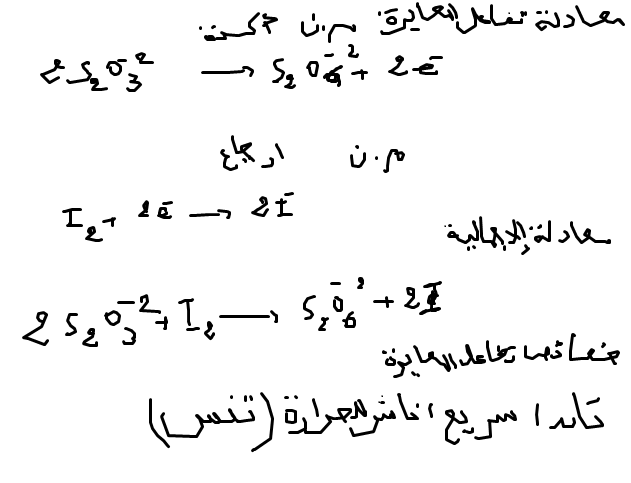 معادلة تفاعل المعايرة م.ن أكسدة
2 S₂O₃⁻² → S₂O₆⁻² + 2e⁻
م.ن ارجاع
I₂ + 2e⁻ → 2I⁻
معادلة الاجمالية
2 S₂O₃⁻² + I₂ → S₂O₆⁻² + 2I⁻
خصائص تفاعل المعايرة
سريع ناشر للحرارة (تنس)